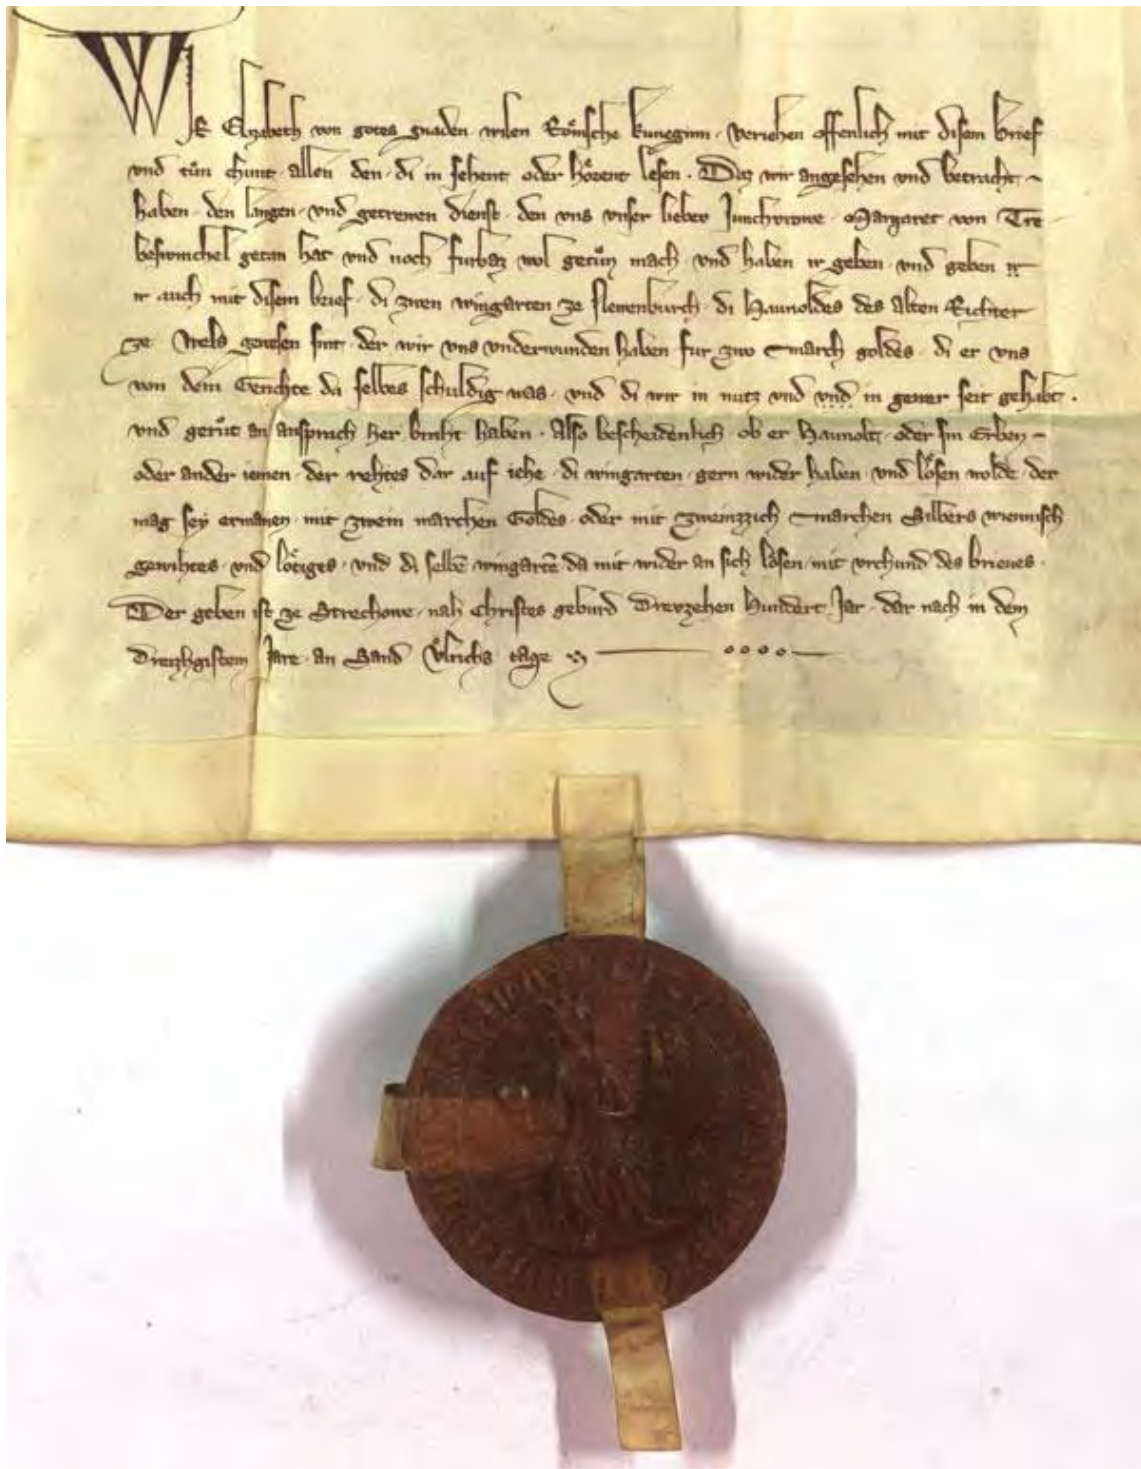 WIR Elyzabeth von gotes gnaden wilen Roͤmsche kuneginn · veriehen offenlich mit disem brief
vnd tuͦn chunt allen den · di in sehent oder hoͤrent lesen · Daz wir angesehen vnd betracht
haben · den langen · vnd getrewen dienst · den vns vnser liebev Junchvrowe · Margaret von Tre
beswinchel getan hat vnd noch furbaz wol getuͦn mach · vnd haben ir geben · vnd geben ir
ir auch mit disem brief · di zwen wingarten ze Newenburch · di Haunoldes des alten Richter
ze Wels gewesen sint · der wir vns vnderwunden haben fur zwo march goldes · di er vns
von dem Gerichte da selbes schuldig was · vnd di wir in nutz vnd vnd in gewer seit gehabt ·
vnd geruͦt an ansprach her braht haben · Also bescheidenlich ob er Haunolt · oder sin Erben
oder ander iemen · der rehtes dar auf iehe · di wingarten · gern wider haben · vnd loͤsen wolde · der
mag sey ermanen · mit zwein marchen Goldes · oder mit zweinzzich marchen Silbers wiennisch
gewihtes · vnd loͤtiges · vnd di selbē wingartē da mit wider an sich loͤsen · mit vrchund des brieues ·
Der geben ist ze Strechowe · nah Christes geburd Drevzehen Hundert Jar · dar nach in dem
Dreizhgistem Jare · an Sand Vͦlrichs tage